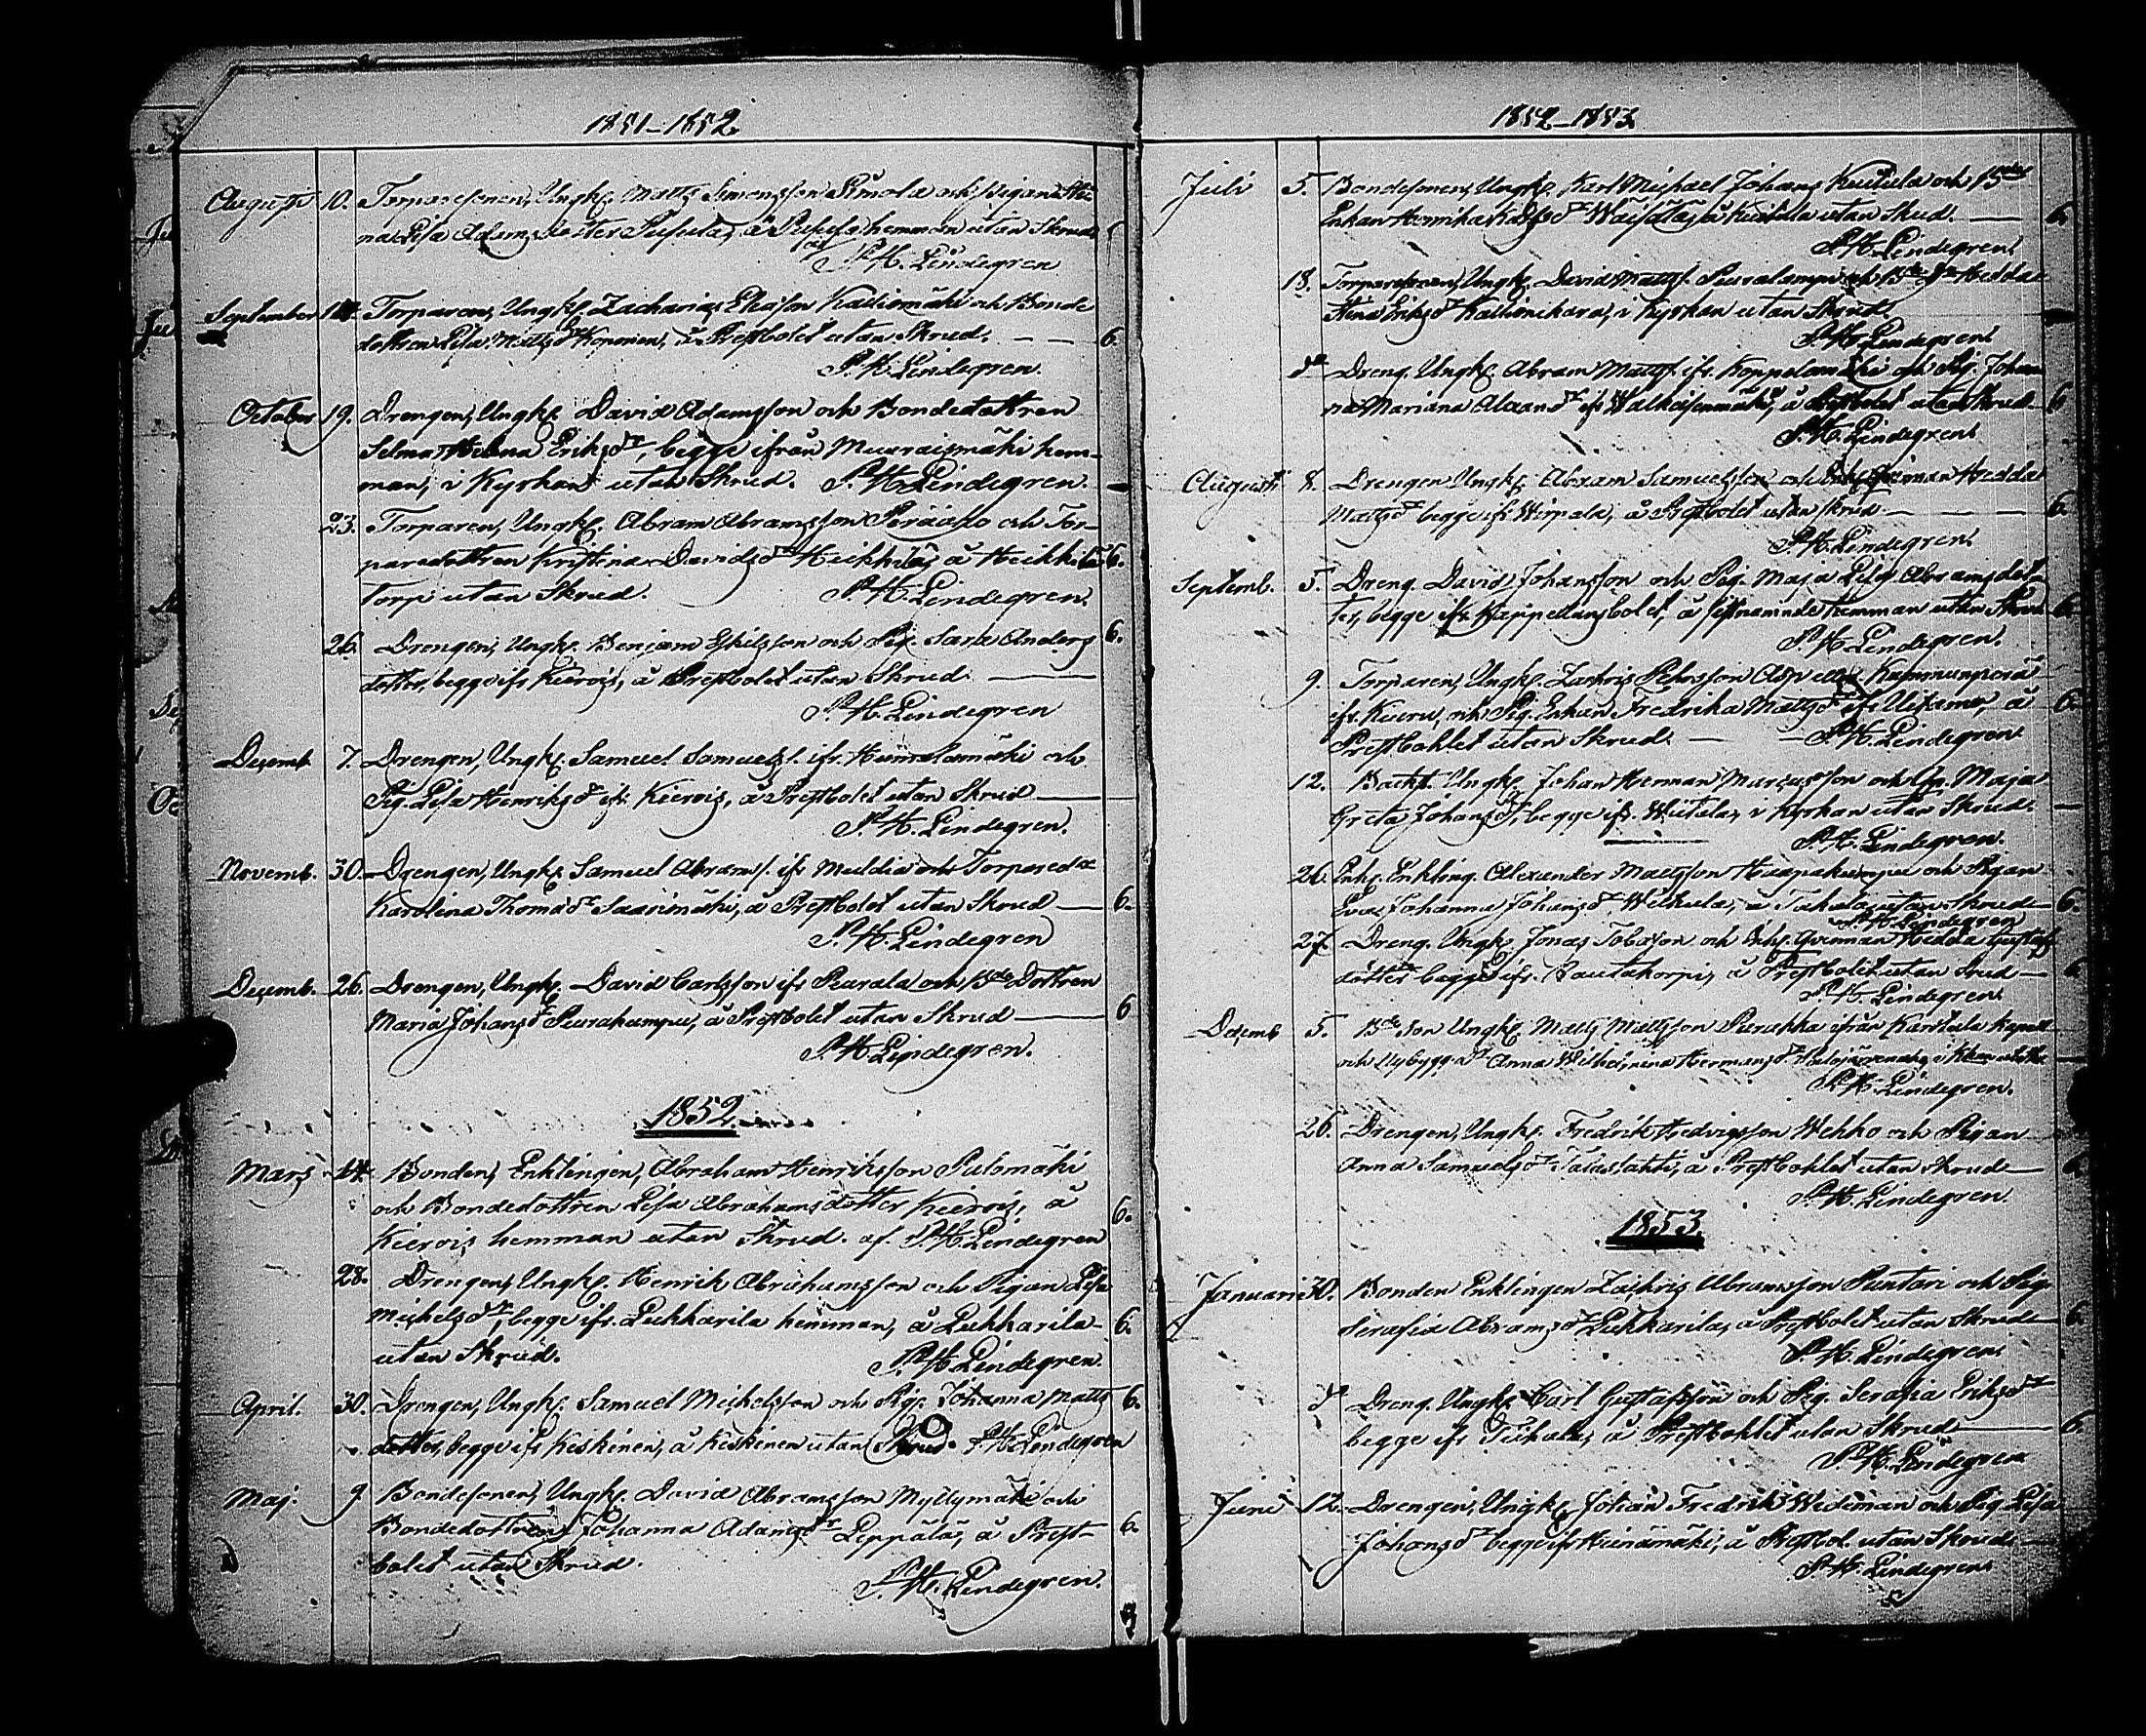 1851–1852.
Augusti 10. Torparesonen, Ungk. Matts Simonsson Simola och pigan Sti-
na Lisa Adams Dotter Pusula, å Pusula hemman utan Skrud 6
af P. H. Lindegren
September 14. Torparen, Ungk. Zacharias Eliasson Kalliomäki och Bonde
dottren Lisa Matts dr Koponen, å Prestbolet utan Skrud. — — 6.
P. H. Lindegren.
October 19. Drengen, Ungk. David Adamsson och Bondedottren
Selma Helena Eriks dr, begge ifrån Muuraismäki hem-
man, i Kyrkan utan Skrud. P. H. Lindegren. —
23. Torparen, Ungk. Abram Abramsson Perääho och Tor-
paredottren Kristina Davids dr Heikkilä, å Heikkilä 6.
torp utan Skrud. P. H. Lindegren.
26. Drengen, Ungk. Benjam Eskilsson och Pig. Sara Anders 6.
dotter, begge ifr Kierois, å Prestbolet utan Skrud. —
P. H. Lindegren
Decemb. 7. Drengen, Ungk. Samuel Samuelss. ifr. och
Pig. Lisa Henriks dr ifr. Kierois, å Prestbolet utan Skrud —
P. H. Lindegren.
Novemb. 30. Drengen, Ungk. Samuel Abrams. ifr Muldia och Torpareda
Karolina Thoma dr Saarimäki, å Prestbolet utan Skrud — 6.
P. H. Lindegren
Decemb. 26. Drengen, Ungk. David Carlsson ifr Peurala och Bde Dottren
Maria Johans dr Peurakumpu, å Prestbolet utan Skrud — 6
P. H. Lindegren.
1852.
Mars 14. Bonden, Enklingen, Abraham Henriksson Pulomäki
och Bondedottren Lisa Abrahamsdotter Kierois, å 6.
Kierois hemman utan Skrud. af P. H. Lindegren
28. Drengen, Ungk. Henrik Abrahamsson och Pigan Lisa
Michels dr, begge ifr. Lukkarila hemman, å Lukkarila 6.
utan Skrud. P. H. Lindegren.
April. 30. Drengen, Ungk. Samuel Michelsson och Pig. Johanna Matts 6.
dotter, begge ifr Keskinen, å Keskinen utan Skrud. P. H. Lindegren
Maj. 9. Bondesonen, Ungk. David Abramsson Myllymäki och
Bondedottren Johanna Adams dr Leppälä, å Prest- 6.
bolet utan Skrud. P. H. Lindegren.
1852–1853.
Juli 5. Bondesonen, Ungk. Karl Michael Johans Kuitula och Bonde
Enkan Henrika dr Wäisälä, å Kuitula utan Skrud. — 6.
P. H. Lindegren.
18. Torparesonen, Ungk. David Matts. Peuralampi och Bde Dr Hedda
Stina Eriks dr i Kyrkan utan Skrud. —
P. H. Lindegren.
do Dreng. Ungk. Abram Matts. ifr. Koppelomäki och Pig. Johan
na Mariana dr ifr å Prestbolet utan Skrud 6
P. H. Lindegren.
Augusti. 8. Drengen Ungk. Abram Samuelsson och Qvinnan Hedda
Matts dr begge ifr Wirpala, å Prestbolet utan Skrud — 6.
P. H. Lindegren.
Septemb. 5. Dreng. David Johansson och Pig. Maja Lisa Abramsdot-
ter, begge ifr. Kappellansbolet, å sistnämnde hemman utan Skrud 6.
P. H. Lindegren.
9. Torparen, Ungk. Zachris Pehrsson Asp eller
ifr. Kueru, och Pig. Enkan Fredrika Matts dr ifr Uitamo, å 6.
Prestbohlet utan Skrud. — P. H. Lindegren
12. Backst. Ungk. Johan Herman Marcusson och Maja
Greta Johans dr, begge ifr. Wiitala, i Kyrkan utan Skrud. —
P. H. Lindegren.
26. Enkling. Alexander Mattsson Haapakumpu och Pigan
Eva Johanna Johans dr Wilkula, å utan Skrud — 6.
P. H. Lindegren
27. Dreng. Ungk. Jonas Tobiasson och Qvinnan Hedda Gustafs
dotter begge ifr. Rautakorpi, å Prestbolet utan Skrud — 6
P. H. Lindegren.
Decemb 5. Bde Son Ungk. Matts Mattsson Purakka ifrån Karstula Kapell
och Nybygg. dr Anna Wilhelmina Hermans dr —
P. H. Lindegren.
26. Drengen, Ungk. Fredrik Hedvigsson Wehko och Pigan
Anna Samuels dr å Prestbohlet utan Skrud — 6
P. H. Lindegren
1853.
Januari 30. Bonden Enklingen Zachris Abramsson Puntari och Pig
Serafia Abrams dr Lukkarila, å Prestbolet utan Skrud — 6.
P. H. Lindegren.
do Dreng. Ungk. Carl Gustafsson och Pig. Serafia Eriks dr
begge ifr å Prestbohlet utan Skrud — 6.
P. H. Lindegren
Juni 12. Drengen, Ungk. Johan Fredrik Wedeman och Pig. Lisa
Johans dr begge ifr Heinämäki, å Prestbol. utan Skrud —
P. H. Lindegren.